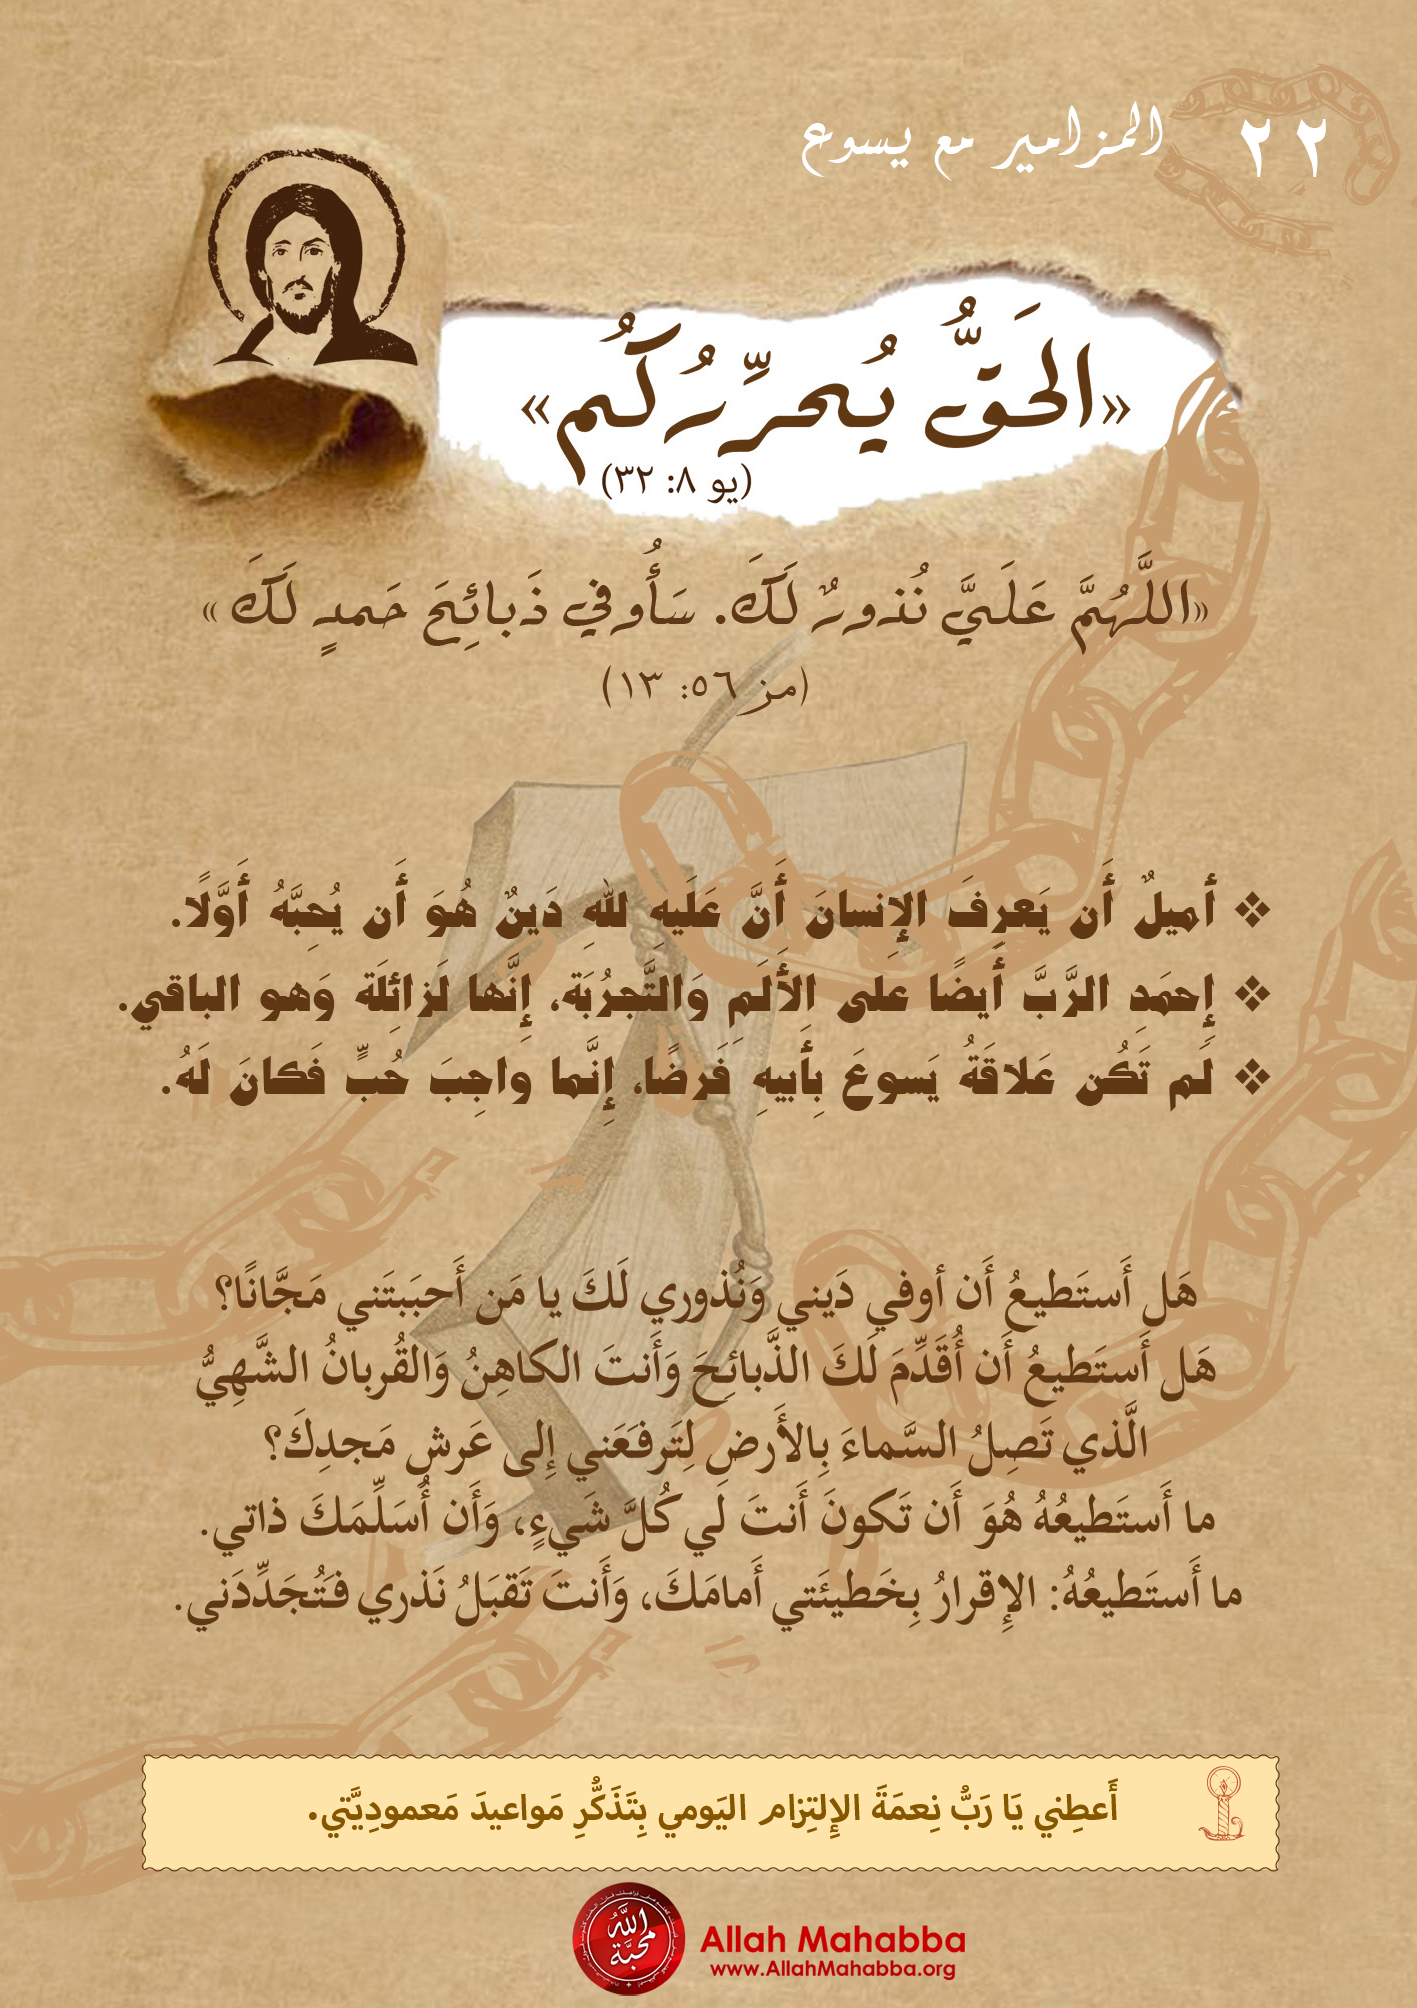 ٢٢ المزامير مع يسوع
«الحَقُّ يُحرِّرُكُم»
(يو ٨: ٣٢)
«اللَّهُمَّ عَلَيَّ نُذورٌ لَكَ. سَأُوفي ذَبائِحَ حَمدٍ لَكَ»
(مز ٥٦: ١٣)
❖ أَميلٌ أَن يَعرِفَ الإِنسانَ أَنَّ عَلَيهِ للهِ دَينٌ هُوَ أَن يُحِبَّهُ أَوَّلًا.
❖ إِحمَدِ الرَّبَّ أَيضًا على الأَلَمِ وَالتَّجرُبَة، إِنَّها لَزائِلَة وَهو الباقي.
❖ لَم تَكُن عَلاقَةُ يَسوعَ بِأَبيهِ فَرضًا، إِنَّما واجِبَ حُبٍّ فَكانَ لَهُ.
هَل أَستَطيعُ أَن أوفي دَيني وَنُذوري لَكَ يا مَن أَحبَبتَني مَجَّانًا؟
هَل أَستَطيعُ أَن أُقَدِّمَ لَكَ الذَّبائِحَ وَأَنتَ الكاهِنُ وَالقُربانُ الشَّهِيُّ
الَّذي تَصِلُ السَّماءَ بِالأَرضِ لِتَرفَعَني إِلى عَرشِ مَجدِكَ؟
ما أَستَطيعُهُ هُوَ أَن تَكونَ أَنتَ لي كُلَّ شَيءٍ، وَأَن أُسَلِّمَكَ ذاتي.
ما أَستَطيعُهُ: الإِقرارُ بِخَطيئَتي أَمامَكَ، وَأَنتَ تَقبَلُ نَذري فَتُجَدِّدَني.
أَعطِني يَا رَبُّ نِعمَةَ الإِلتِزام اليَومي بِتَذَكُّرِ مَواعيدَ مَعمودِيَّتي.
الله محبّة
Allah Mahabba
www.AllahMahabba.org